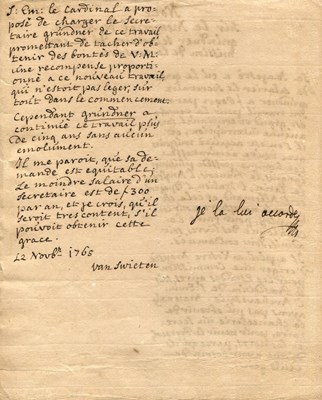 S: Em: le Cardinal a pro=
posé de charger le Secre=
taire gründner de ce travail
promettant de tacher d'ob=
tenir des bontés de V: M:
une recompense proporti=
onné a ce nouveau travail
qui n'estoit pas leger, sur
tout dans le commencement.
Cependant gründner a
continué ce travail plus
De cinq ans sans aucun
emolument.
Il me paroit, que sa de=
mande est equitable;
Le moindre salaire d'un
Secretaire est de f 300
par an, et je crois, qu'il
seroit tres content, s'il
pouvoit obtenir cette
grace.
12 Novbr. 1765
van Swieten
je la lui accorde